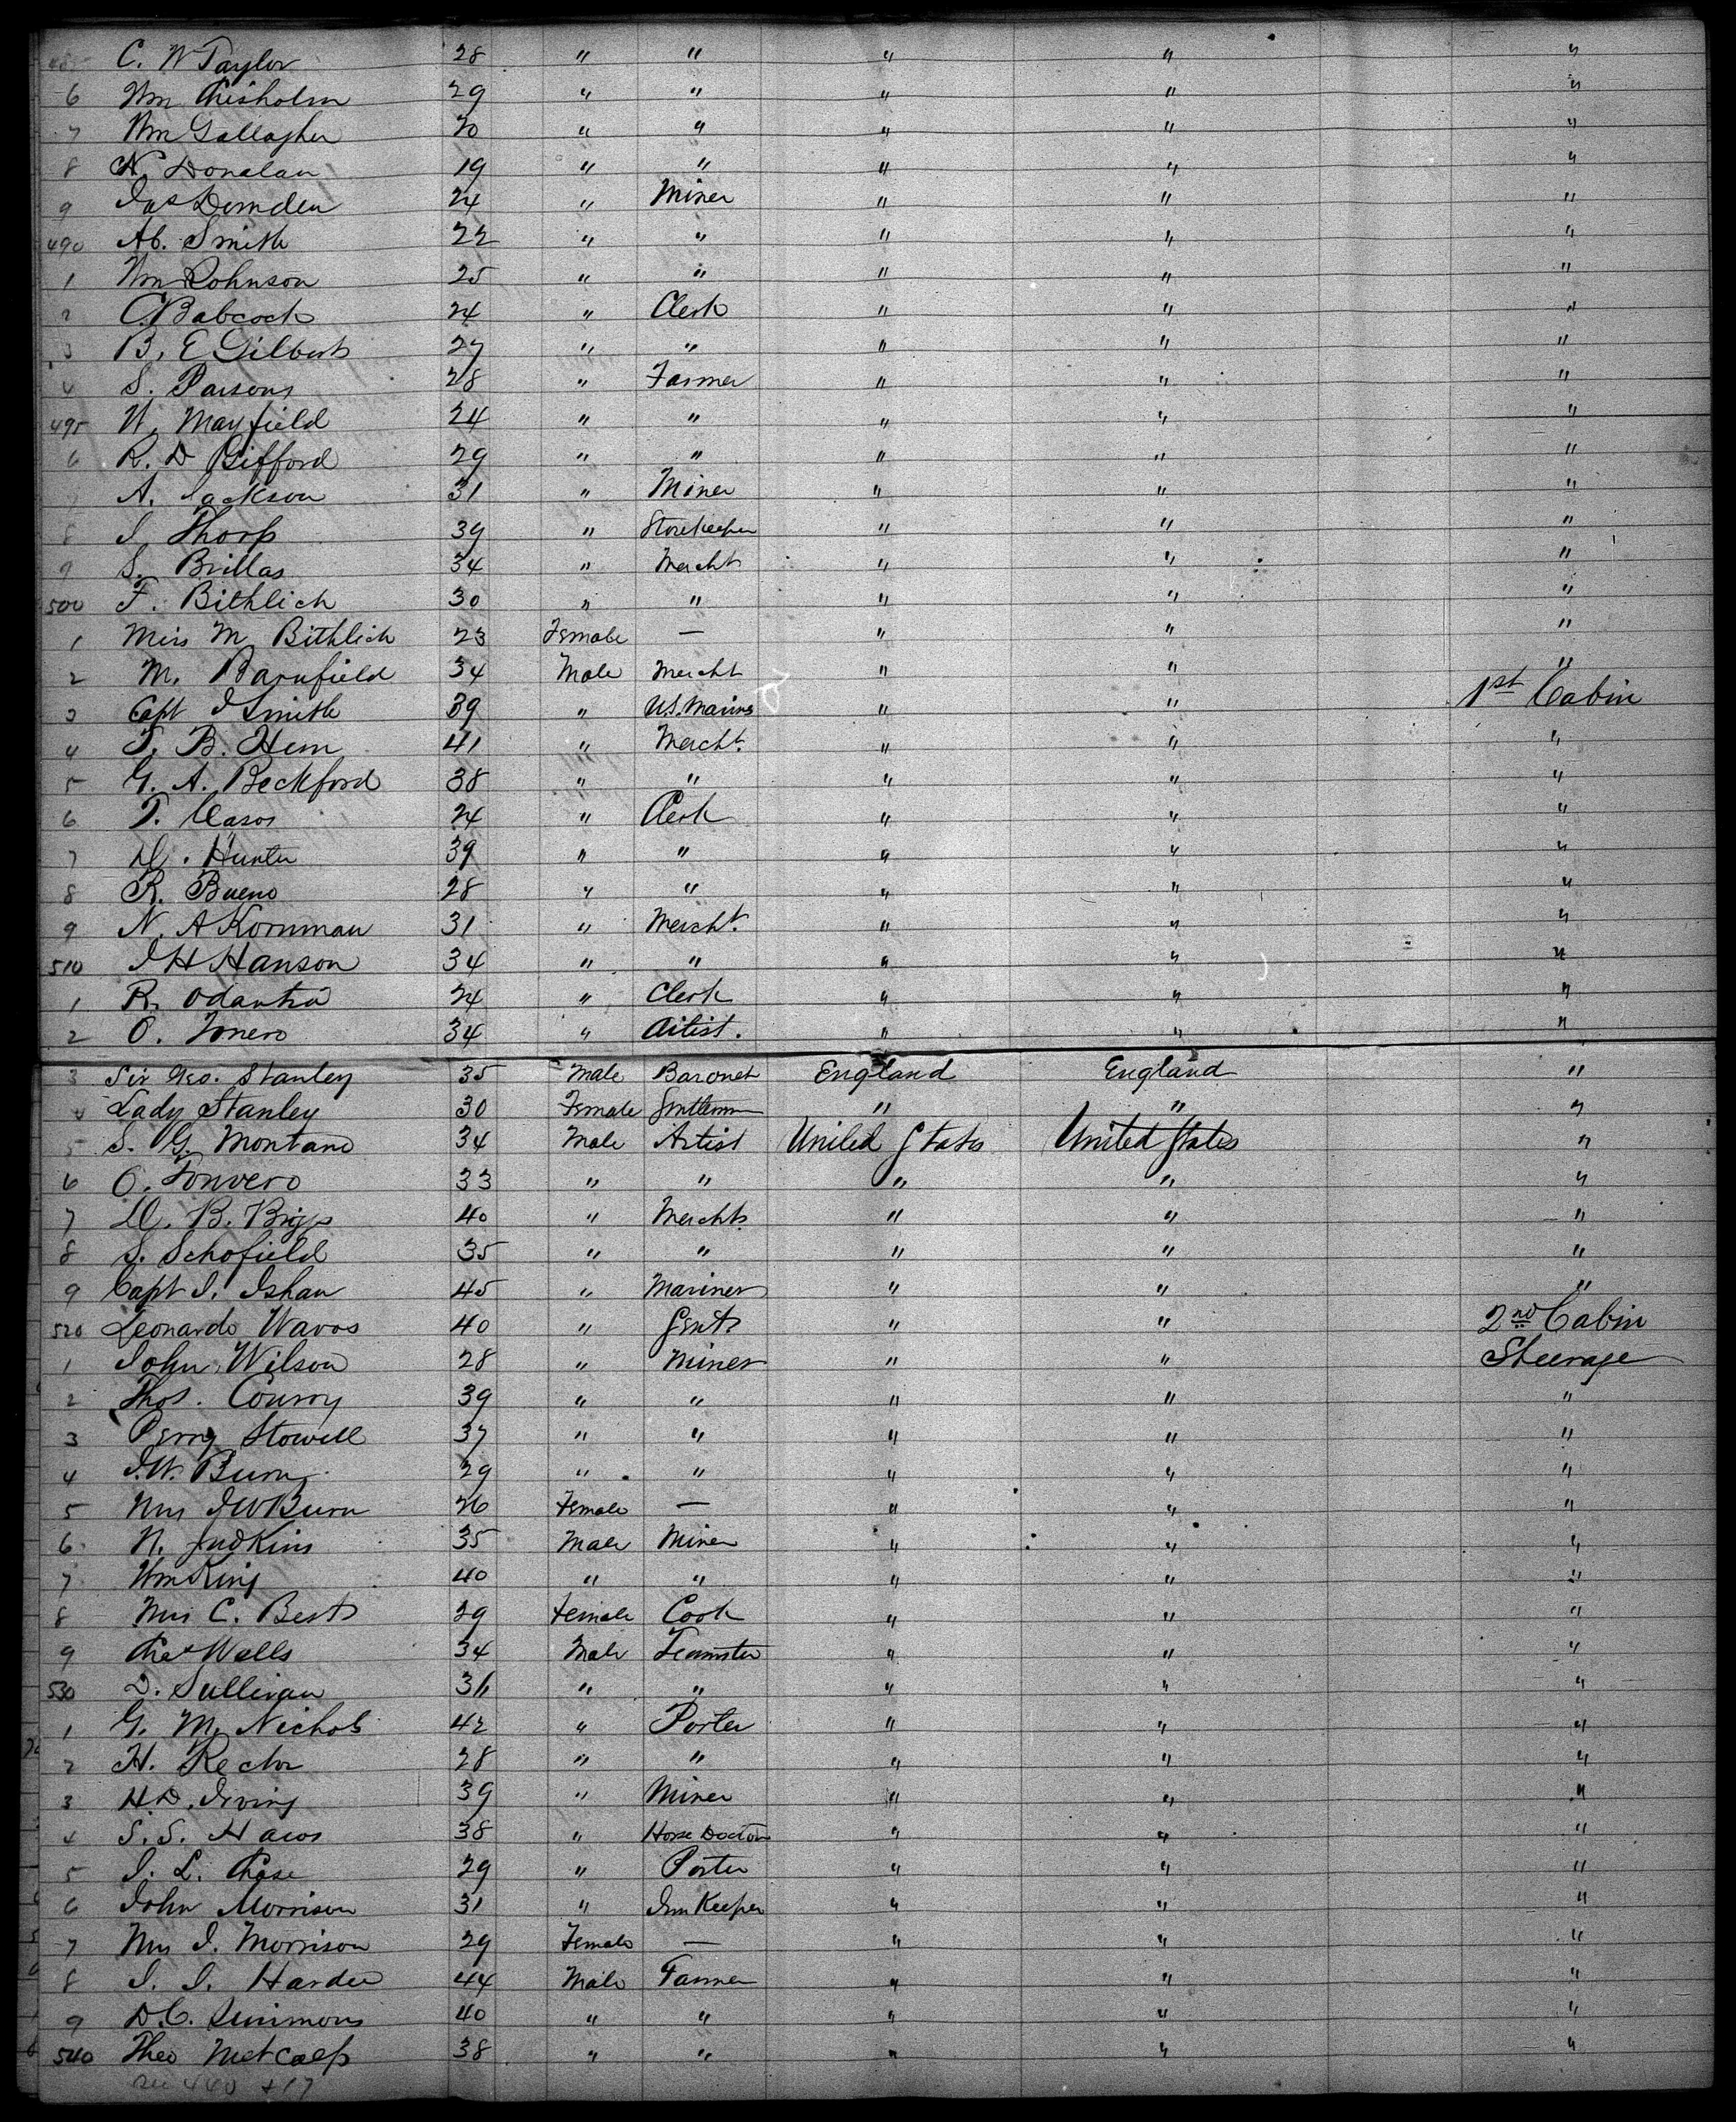 485 C. W Taylor 28 " " " " "
6 Wm Chisholm 29 " " " " "
7 Wm Gallagher 20 " " " " "
8 N. Donalan 19 " " " " "
9 Jas Demden 24 " Miner " " "
490 Ab. Smith 22 " " " " "
1 Wm Johnson 25 " " " " "
2 C. Babcock 24 " Clerk " " "
3 B. E Gilbert 27 " " " " "
4 S. Parsons 28 " Farmer " " "
495 W. Mayfield 24 " " " " "
6 R. D Gifford 29 " " " " "
7 A. Jackson 31 " Miner " " "
8 J. Thorp 39 " Storekeeper " " "
9 S. Brillas 34 " Mercht " " "
500 F. Bithlich 30 " " " " "
1 Miss M. Bithlich 23 Female — " " "
2 M. Barnfield 34 Male Mercht " " "
3 Capt J Smith 39 " U.S. Marins " " 1st Cabin
4 T. B. Hem 41 " Mercht. " " "
5 G. A. Beckford 38 " " " " "
6 T. Casos 24 " Clerk " " "
7 W. Hunter 39 " " " " "
8 R. Bueno 28 " " " " "
9 N. A Kornman 31 " Mercht. " " "
510 J H Hanson 34 " " " " "
1 R. 24 " Clerk " " "
2 O. 34 " Artist. " " "
3 Sir Geo. Stanley 35 Male Baronet England England "
4 Lady Stanley 30 Female Gentleman " " "
5 S. G. Montano 34 Male Artist United States United States "
6 O. Tonvero 33 " " " " "
7 W. B. Biggs 40 " Mercht. " " "
8 S. Schofield 35 " " " " "
9 Capt J. Isham 45 " Mariner " " "
520 Leonardo Wavos 40 " Gent " " 2nd Cabin
1 John Wilson 28 " Miner " " Steerage
2 Thos. Conroy 39 " " " " "
3 Perry Stowell 37 " " " " "
4 J. W. Burn 29 " " " " "
5 Mrs J W Burn 26 Female — " " "
6 N. Judkins 35 Male Miner " " "
7 Wm King 40 " " " " "
8 Mrs C. Best 29 Female Cook " " "
9 Chas Wells 34 Male Teamster " " "
530 D. Sullivan 31 " " " " "
1 G. M. Nichols 42 " Porter " " "
2 H. Rector 28 " " " " "
3 H. D. Irving 39 " Miner " " "
4 S. S. Haws 38 " Horse Doctor " " "
5 J. L. Chase 29 " Porter " " "
6 John Morrison 31 " Inn Keeper " " "
7 Mrs J. Morrison 29 Female — " " "
8 J. J. Harder 44 Male Farmer " " "
9 D. C. Simmons 40 " " " " "
540 Theo Metcalf 38 " " " " "